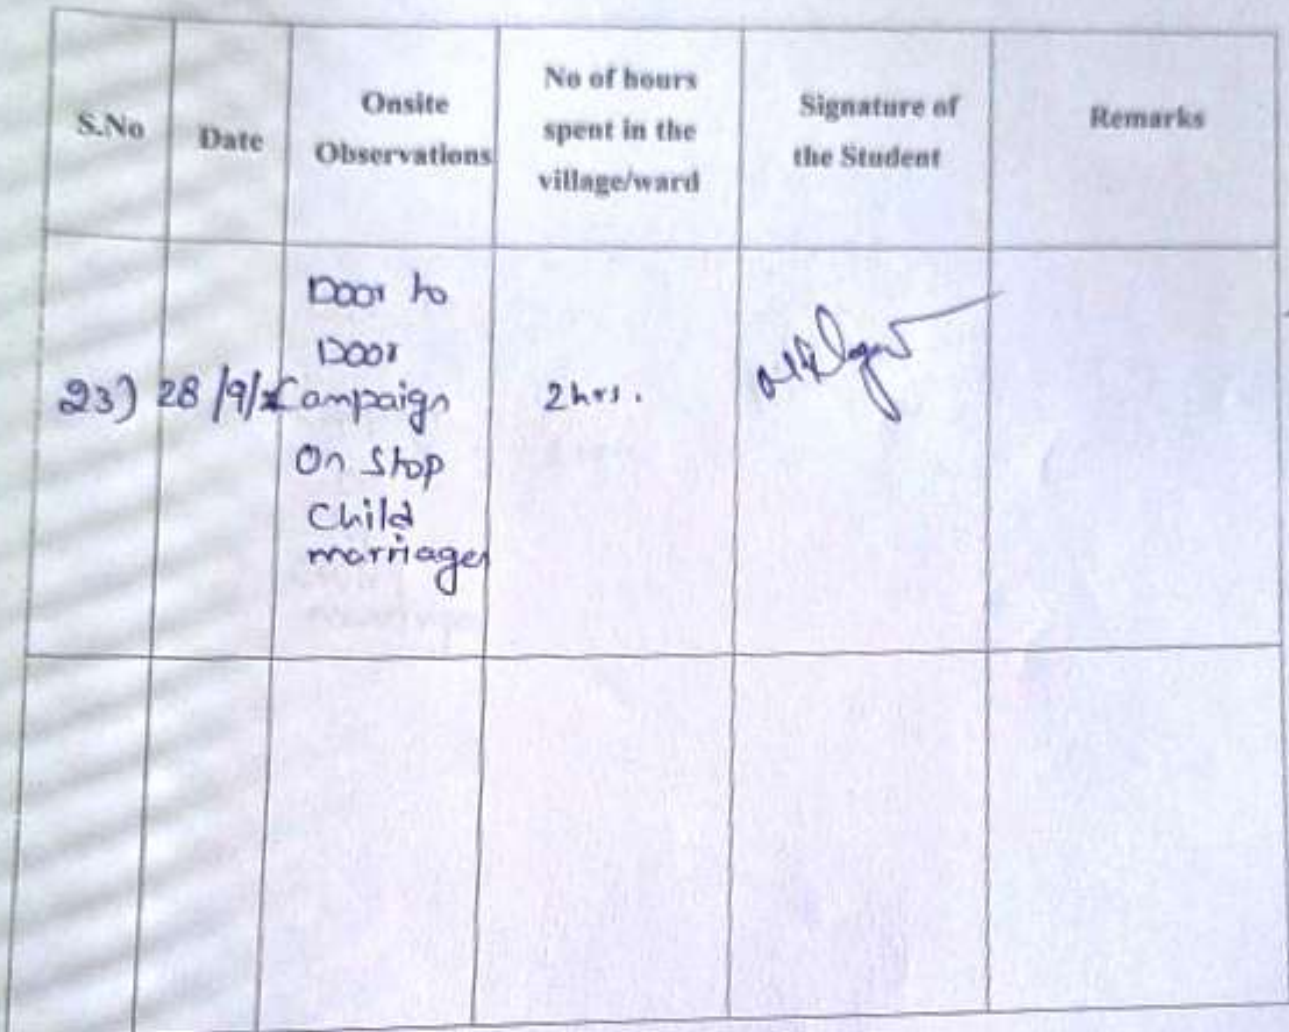 S.No
Date
Onsite
Observations
No of hours
spent in the
village/ward
Signature of
the Student
Remarks
23)
28/9/
Door to
Door
Campaign
On Stop
Child
marriages
2hrs.